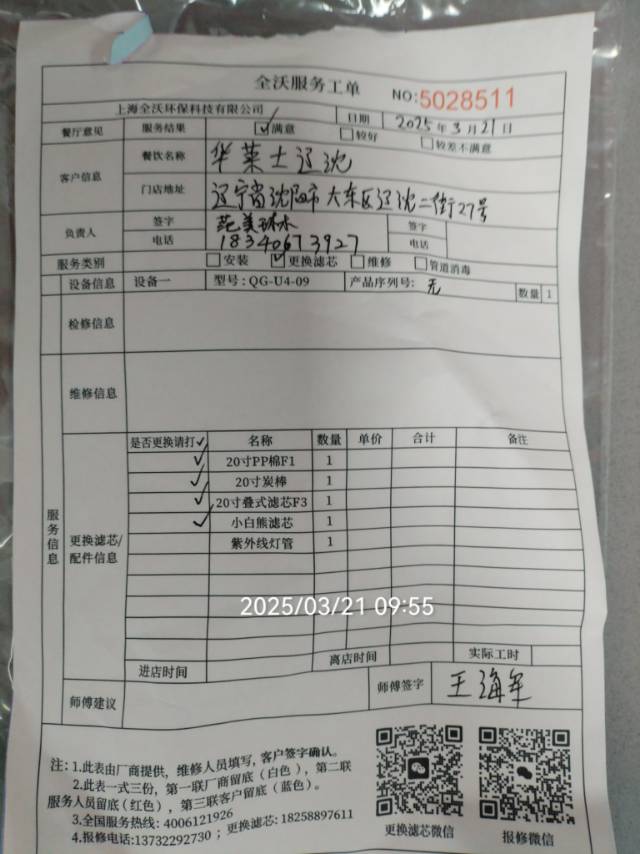 全沃服务工单
NO:5028511
上海全沃环保科技有限公司 日期 2025年3月21日
餐厅意见 服务结果 ☑满意 □较好 □较差不满意
客户信息 餐饮名称 华莱士辽沈
门店地址 辽宁省沈阳市大东区辽沈二街27号
负责人 签字 签字
电话 18340673927 电话
服务类别 □安装 ☑更换滤芯 □维修 □管道消毒
设备信息 设备一 型号:QG-U4-09 产品序列号: 无 数量 1
检修信息
维修信息
服务信息
更换滤芯/配件信息
是否更换请打✓ 名称 数量 单价 合计 备注
✓ 20寸PP棉F1 1
✓ 20寸炭棒 1
✓ 20寸叠式滤芯F3 1
✓ 小白熊滤芯 1
紫外线灯管 1
2025/03/21 09:55
进店时间 离店时间 实际工时
师傅建议 师傅签字 王海军
注:1.此表由厂商提供，维修人员填写，客户签字确认。
2.此表一式三份，第一联厂商留底（白色），第二联
服务人员留底(红色)，第三联客户留底（蓝色）。
3.全国服务热线: 4006121926
4.报修电话:13732292730 ; 更换滤芯: 18258897611
更换滤芯微信 报修微信